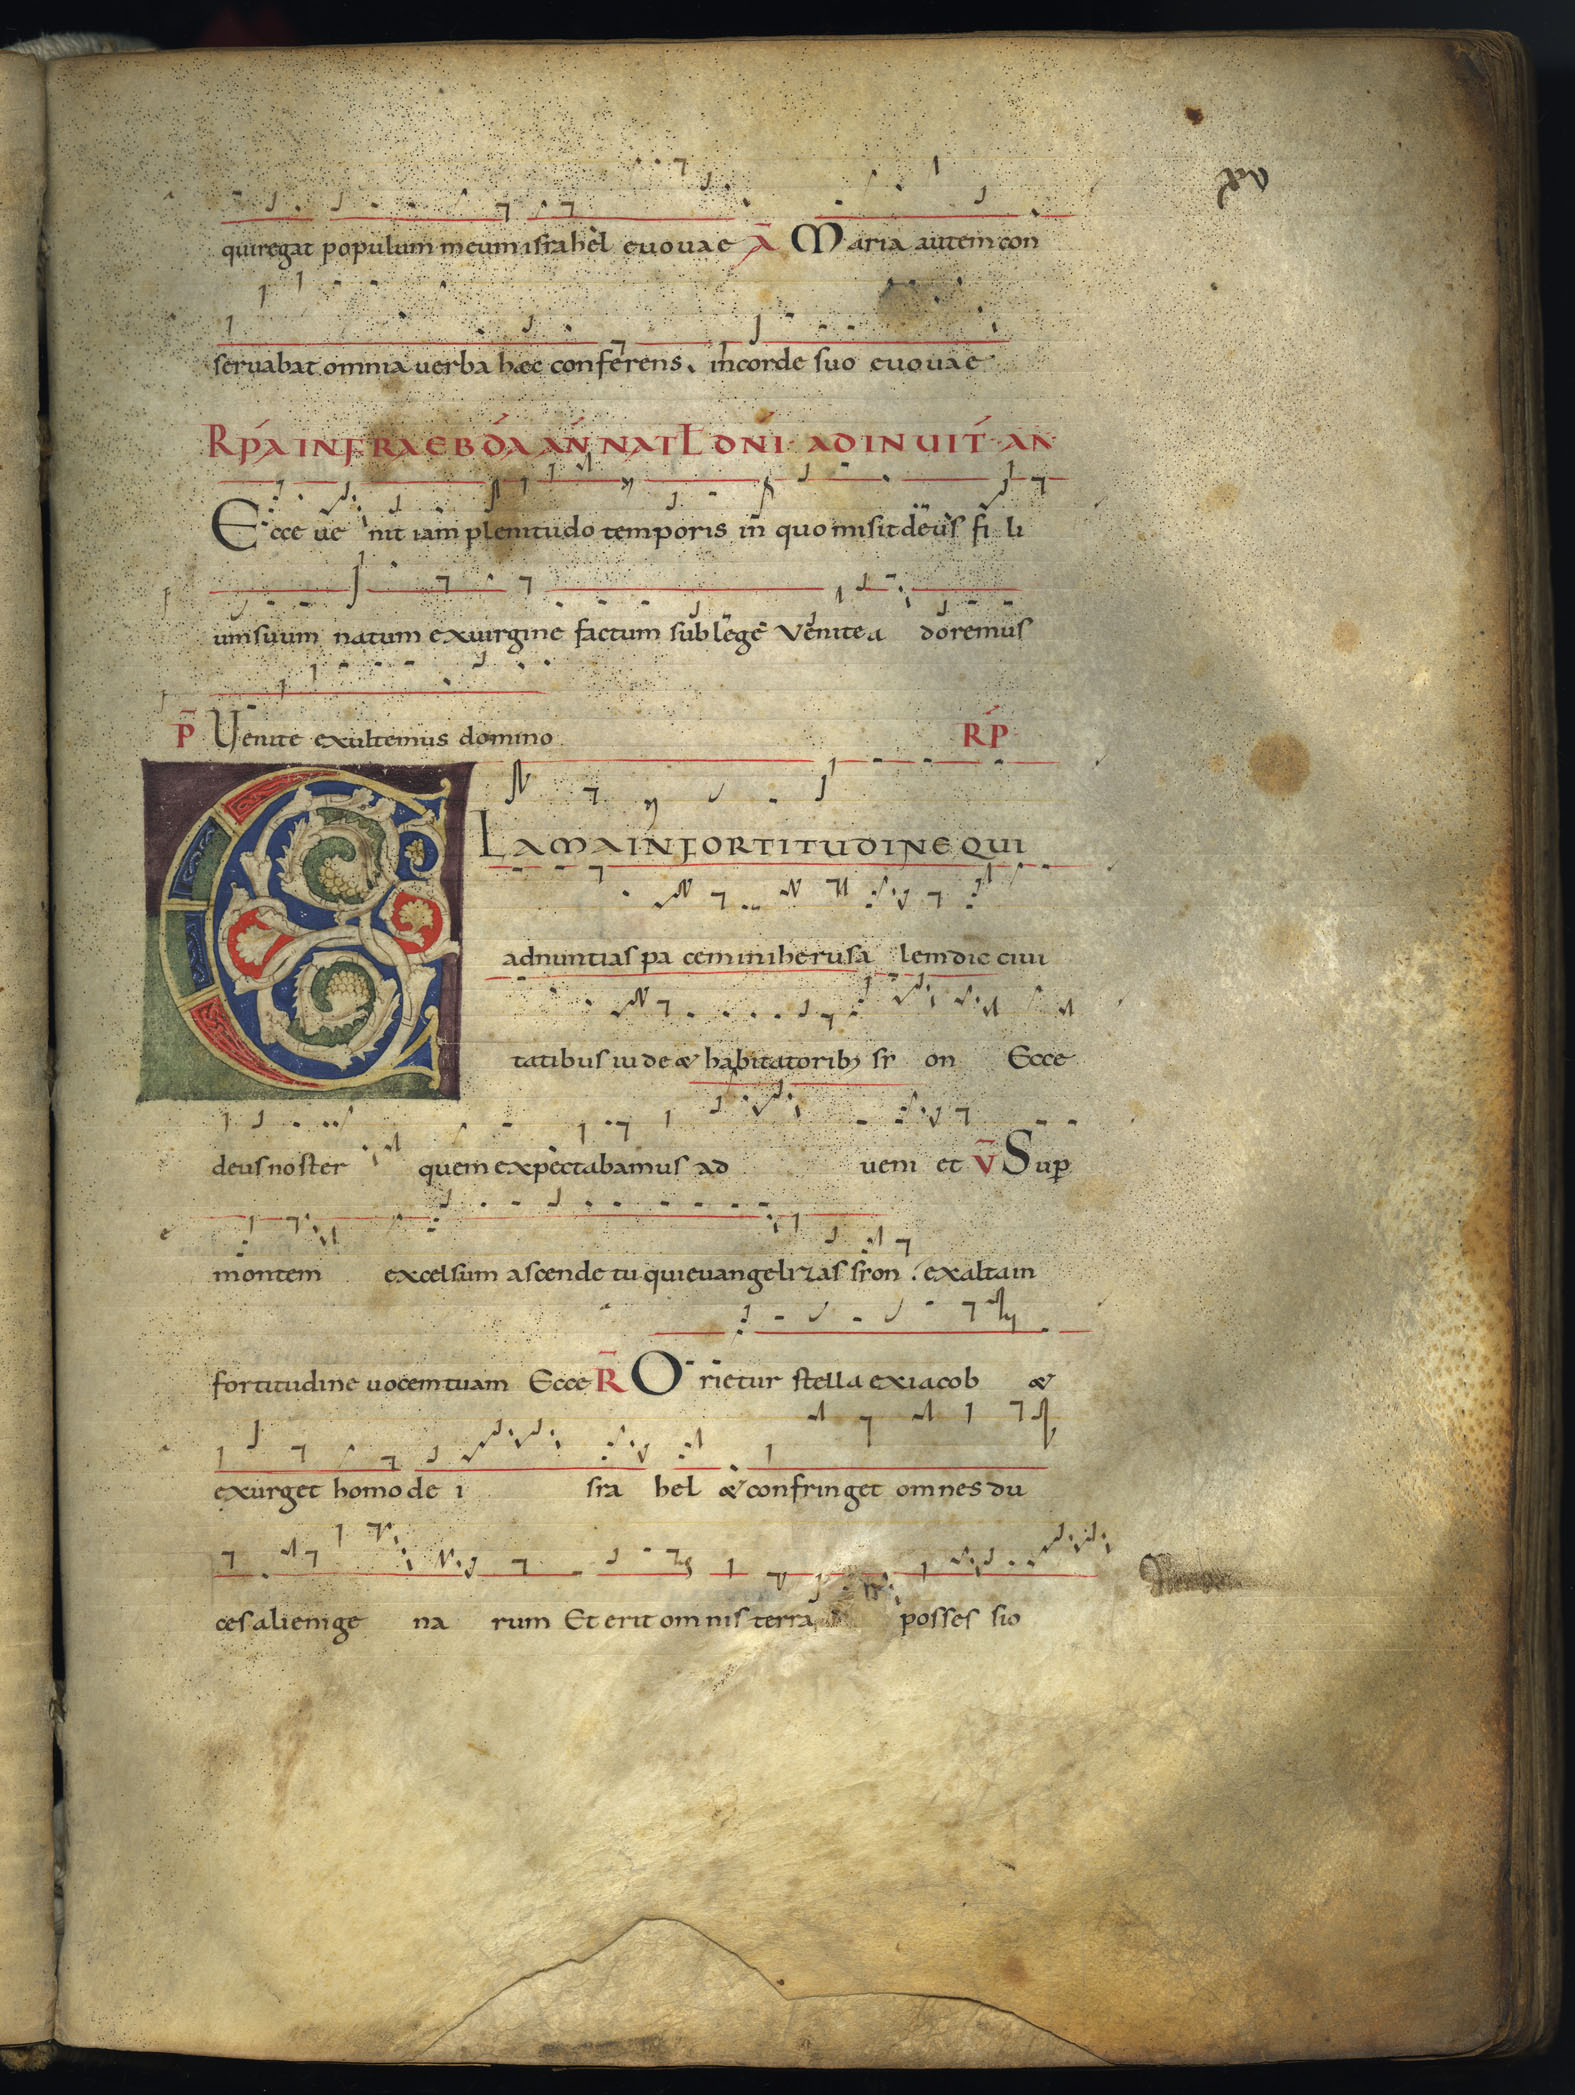 quiregat populum meum israhel euouae Ā Maria autem con
seruabat omnia uerba hæc conferens. incorde suo euouae
RṔA INFRA EBDA AÑ NATL DNI · AD INUIT · AN
Ecce ue nit iam plenitudo temporis in quo misit deus fi li
umsuum natum exuirgine factum sub lege Venite a doremus
P̄ Uenite exultemus domino RP
CLAMA IN FORTITUDINE QUI
adnuntias pa cem inihe rusa lem dic ciui
tatibus iu de & habitatorib; sr on Ecce
deus noster quem expectabamus ad ueni et V̄ Sup
montem excelsum ascende tu qui euangelizas sron . exaltain
fortitudine uocem tuam Ecce R̄ O rietur stella ex iacob &
exurget homo de i sra hel & confringet omnes du
ces alienige na rum Et erit om nis terra posses sio